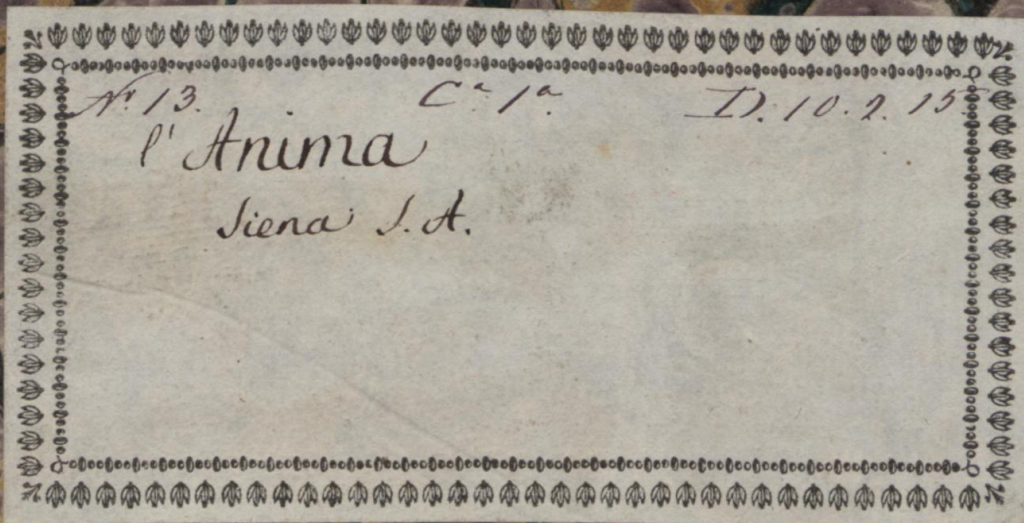 Nº 13. Cª 1ª D. 10. 2. 15.
l' Anima
Siena S. A.